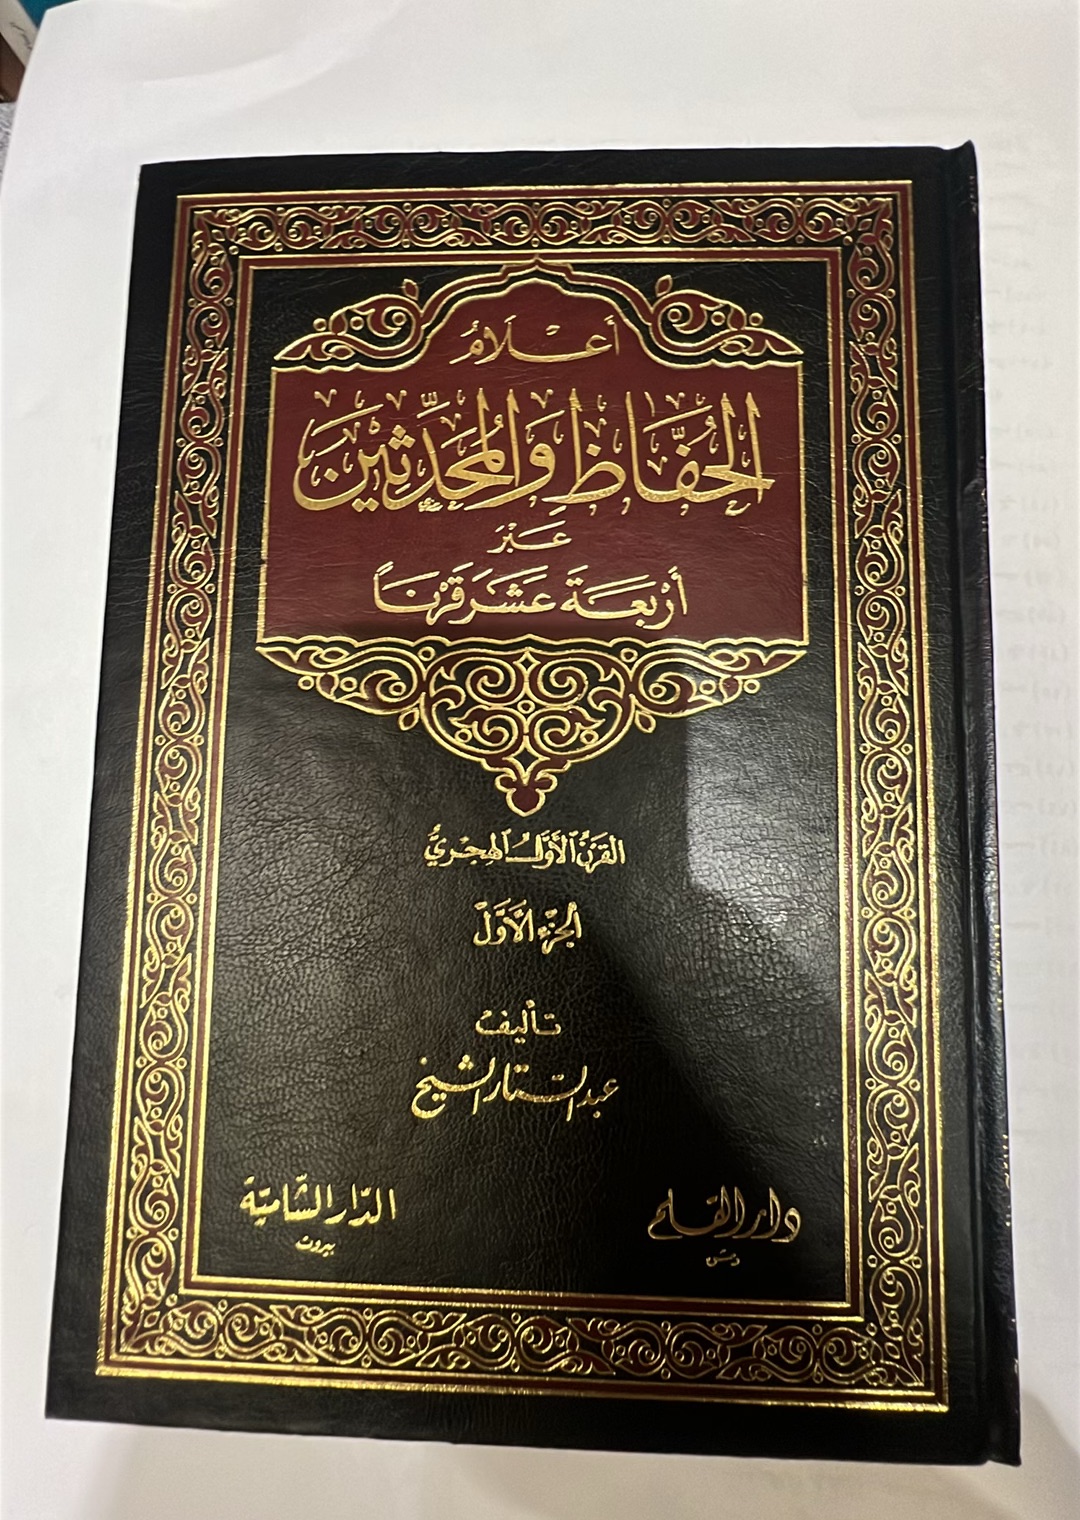 أَعْلَامُ
الحُفَّاظِ وَالمُحَدِّثِينَ
عَبْرَ
أَرْبَعَةَ عَشَرَ قَرْنَاً
القَرْنُ الأَوَّلُ الهِجْرِيُّ
الجُزْءُ الأَوَّلُ
تأليف
عبد الستار الشيخ
دار القلم
دمشق
الدّار الشّاميّة
بيروت